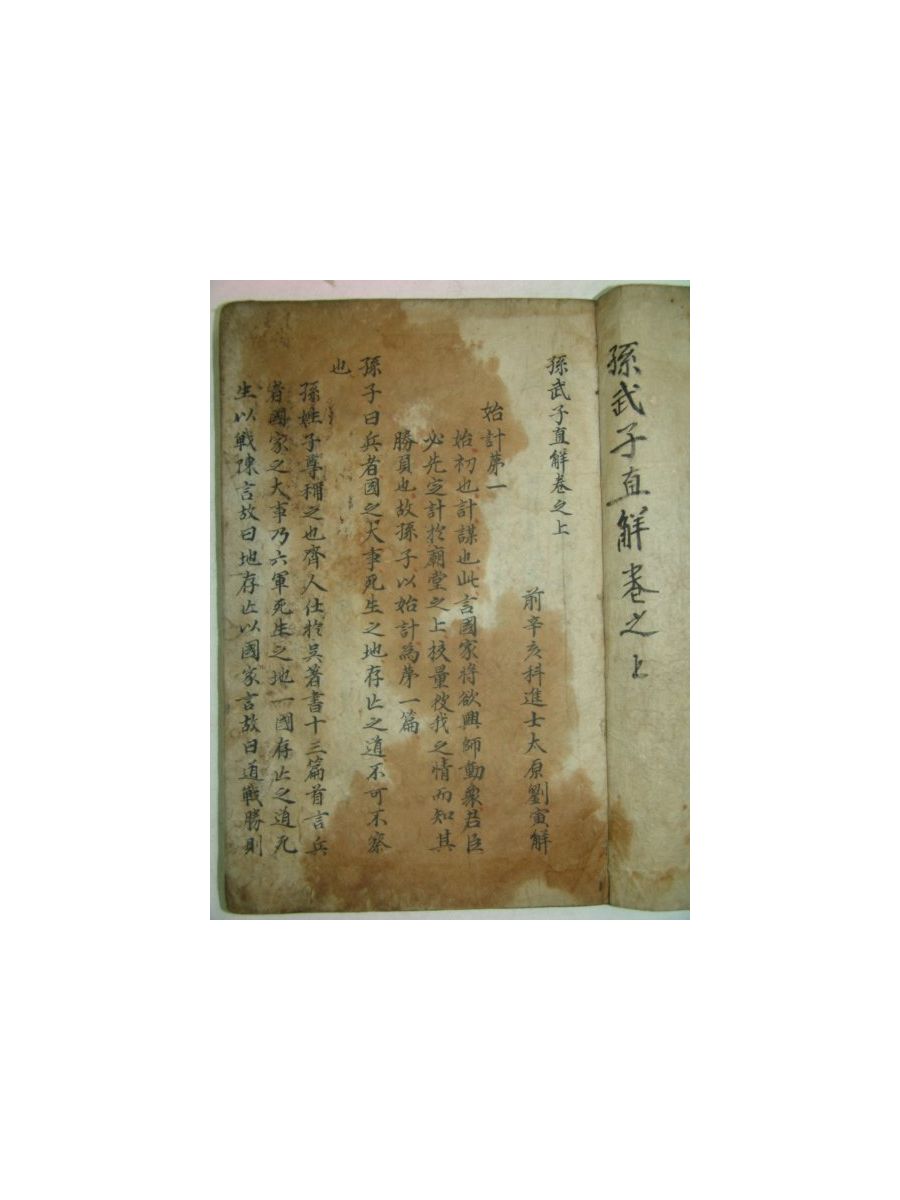 孫武子直解卷之上
孫武子直解卷之上
前辛亥科進士太原劉寅解
始計第一
始初也計謀也此言國家將欲興師動衆君臣
必先定計於廟堂之上挍量彼我之情而知其
勝負也故孫子以始計爲第一篇
孫子曰兵者國之大事死生之地存亡之道不可不察
也
孫姓子尊稱之也齊人仕於吳著書十三篇首言兵
者國家之大事乃六軍死生之地一國存亡之道死
生以戰陳言故曰地存亡以國家言故曰道戰勝則